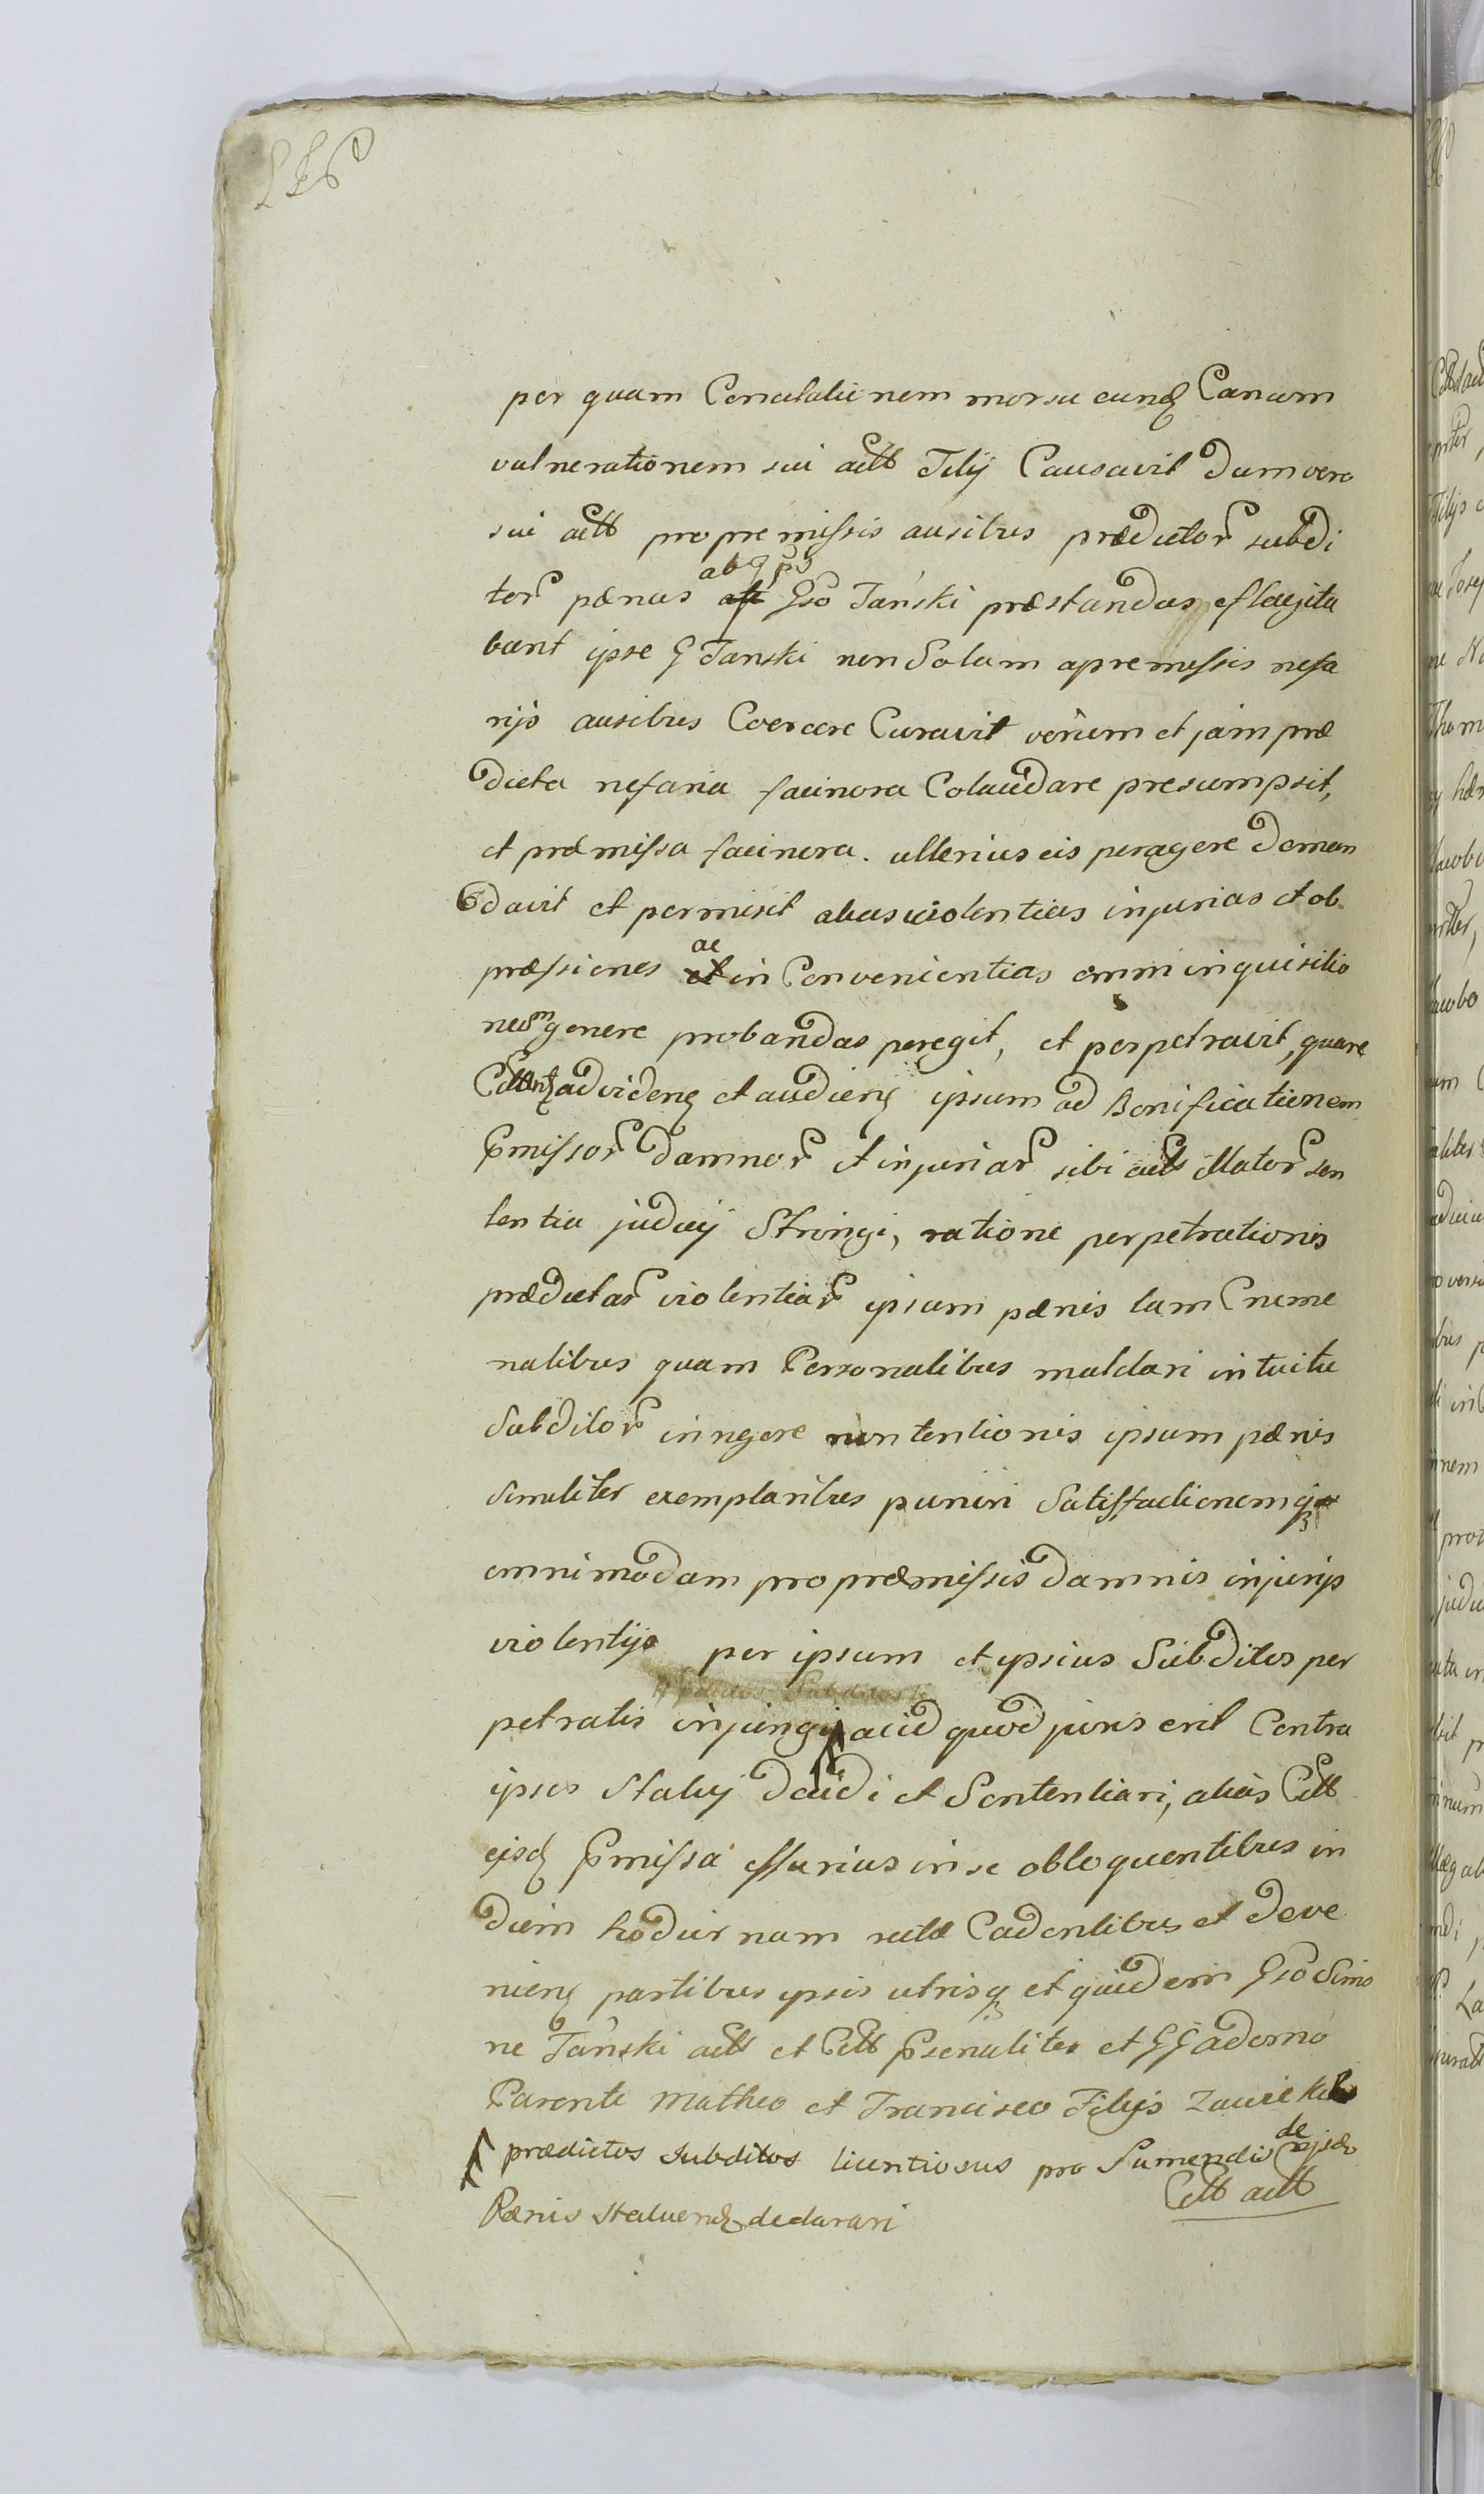 per quam Concitatienem morsu eundȝ Canum
vulnerationem sui actt Filij Causavit Dum vero
sui actt pro premissis ausibus prædictor subdi
tor pænas ab Gso Tański præstandas efflagita
bant ipse G Tanski non Solum a premissis nefa
rijs ausibus Coercere Curavit verum et jam præ
dicta nefaria facinora Colaudare presumpsit,
et præmissa facinora. ulterius eis peragere Deman
davit et permisit alias violentias injurias et ob
præssiones ac in Convenientias omni inquisitio
neum genere probandas peregit, et perpetravit, quare
ad videnȝ et audienȝ ipsum ad Bonificationem
Pmissor Damnor et injuriar sibi actt Mator sen
tentia judicij Stringi, ratione perpetrationis
prædictar violentiar ipsum pænis tam Crume
nalibus quam Personalibus mulctari intuitu
Subditor in rigore non tentionis ipsum pænis
Similiter exemplaribus puniri Satisfactionemqȝ
omnimodam pro præmissis Damnis injurijs
violentijs per ipsum et ipsius Subditos per
petratis injungi acid quod juris erit Contra
ipsos Statuj Decidi et Sententiari, alias Citt
ejsdȝ Pmissa effurius in se obloquentibus in
Diem hodiernam recte Cadentibus et Deve
nienȝ partibus ipsis utrisqȝ et quidem Gso Simo
ne Tański actt et Citt Psonaliter et GG adomo
Parente Matheo et Francisco Filijs
prædictos Subditos licentiosus pro Sumendis de ejsdȝ
Pænis Statuendȝ declarari
Citt actt